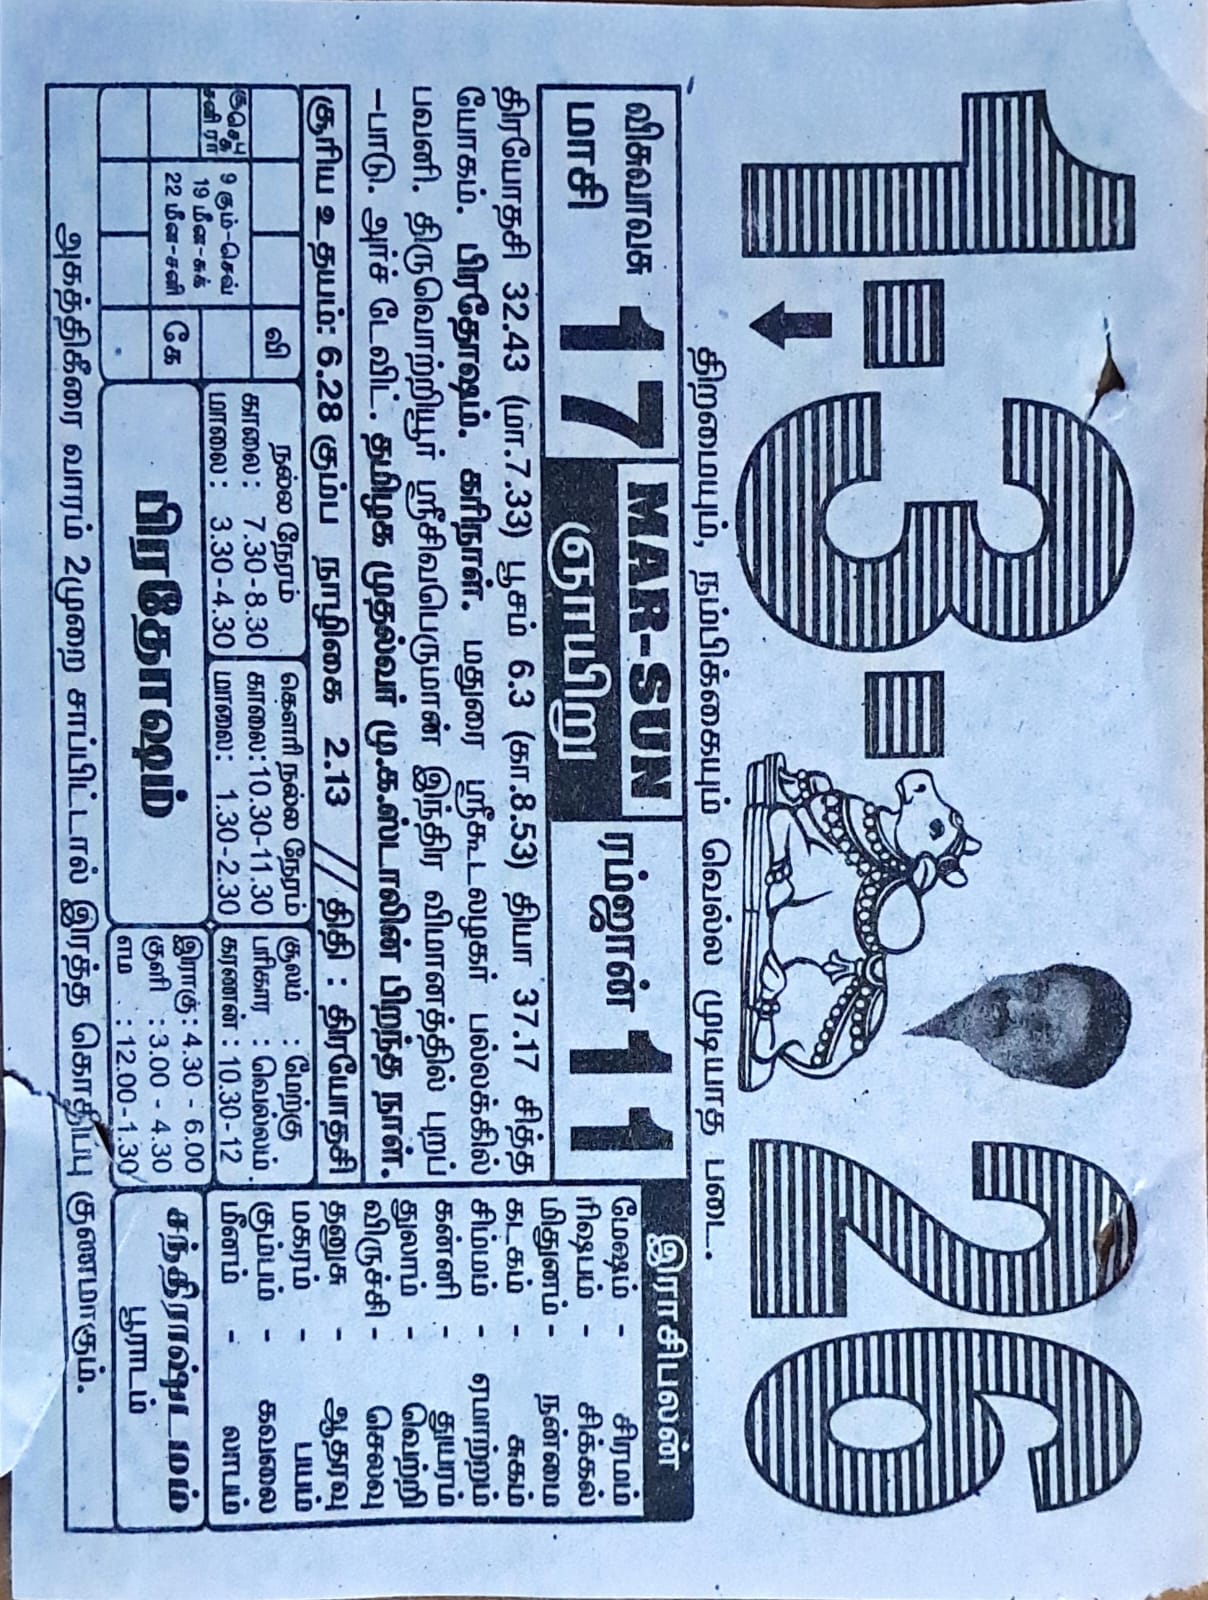 1=3=26
திறமையும், நம்பிக்கையும் வெல்ல முடியாத படை.
விசுவாவசு
மாசி 17
MAR-SUN
ஞாயிறு
ரம்ஜான் 11
திரயோதசி 32.43 (மா.7.33) பூசம் 6.3 (கா.8.53) தியா 37.17 சித்த
யோகம். பிரதோஷம். கரிநாள். மதுரை ஸ்ரீகூடலழகர் பல்லக்கில்
பவனி. திருவொற்றியூர் ஸ்ரீசிவபெருமான் இந்திர விமானத்தில் புறப்
-பாடு. அர்ச் டேவிட். தமிழக முதல்வர் மு.க.ஸ்டாலின் பிறந்த நாள்.
சூரிய உதயம்: 6.28 கும்ப நாழிகை 2.13 // திதி : திரயோதசி
வி
சனி ரா
9 கும்-செவ்
19 மீன-சுக்
22 மீன-சனி
கே
நல்ல நேரம்
காலை: 7.30-8.30
மாலை: 3.30-4.30
கௌரி நல்ல நேரம்
காலை: 10.30-11.30
மாலை: 1.30-2.30
சூலம் : மேற்கு
பரிகார : வெல்லம்
கரணன் : 10.30-12
பிரதோஷம்
இராகு : 4.30 - 6.00
குளி : 3.00 - 4.30
எம : 12.00-1.30
இராசிபலன்
மேஷம் - சிரமம்
ரிஷபம் - சிக்கல்
மிதுனம் - நன்மை
கடகம் - சுகம்
சிம்மம் - ஏமாற்றம்
கன்னி - துயரம்
துலாம் - வெற்றி
விருச்சி - செலவு
தனுசு - ஆதரவு
மகரம் - பயம்
கும்பம் - கவலை
மீனம் - லாபம்
சந்திராஷ்டமம்
பூராடம்
அகத்திகீரை வாரம் 2முறை சாப்பிட்டால் இரத்த கொதிப்பு குணமாகும்.